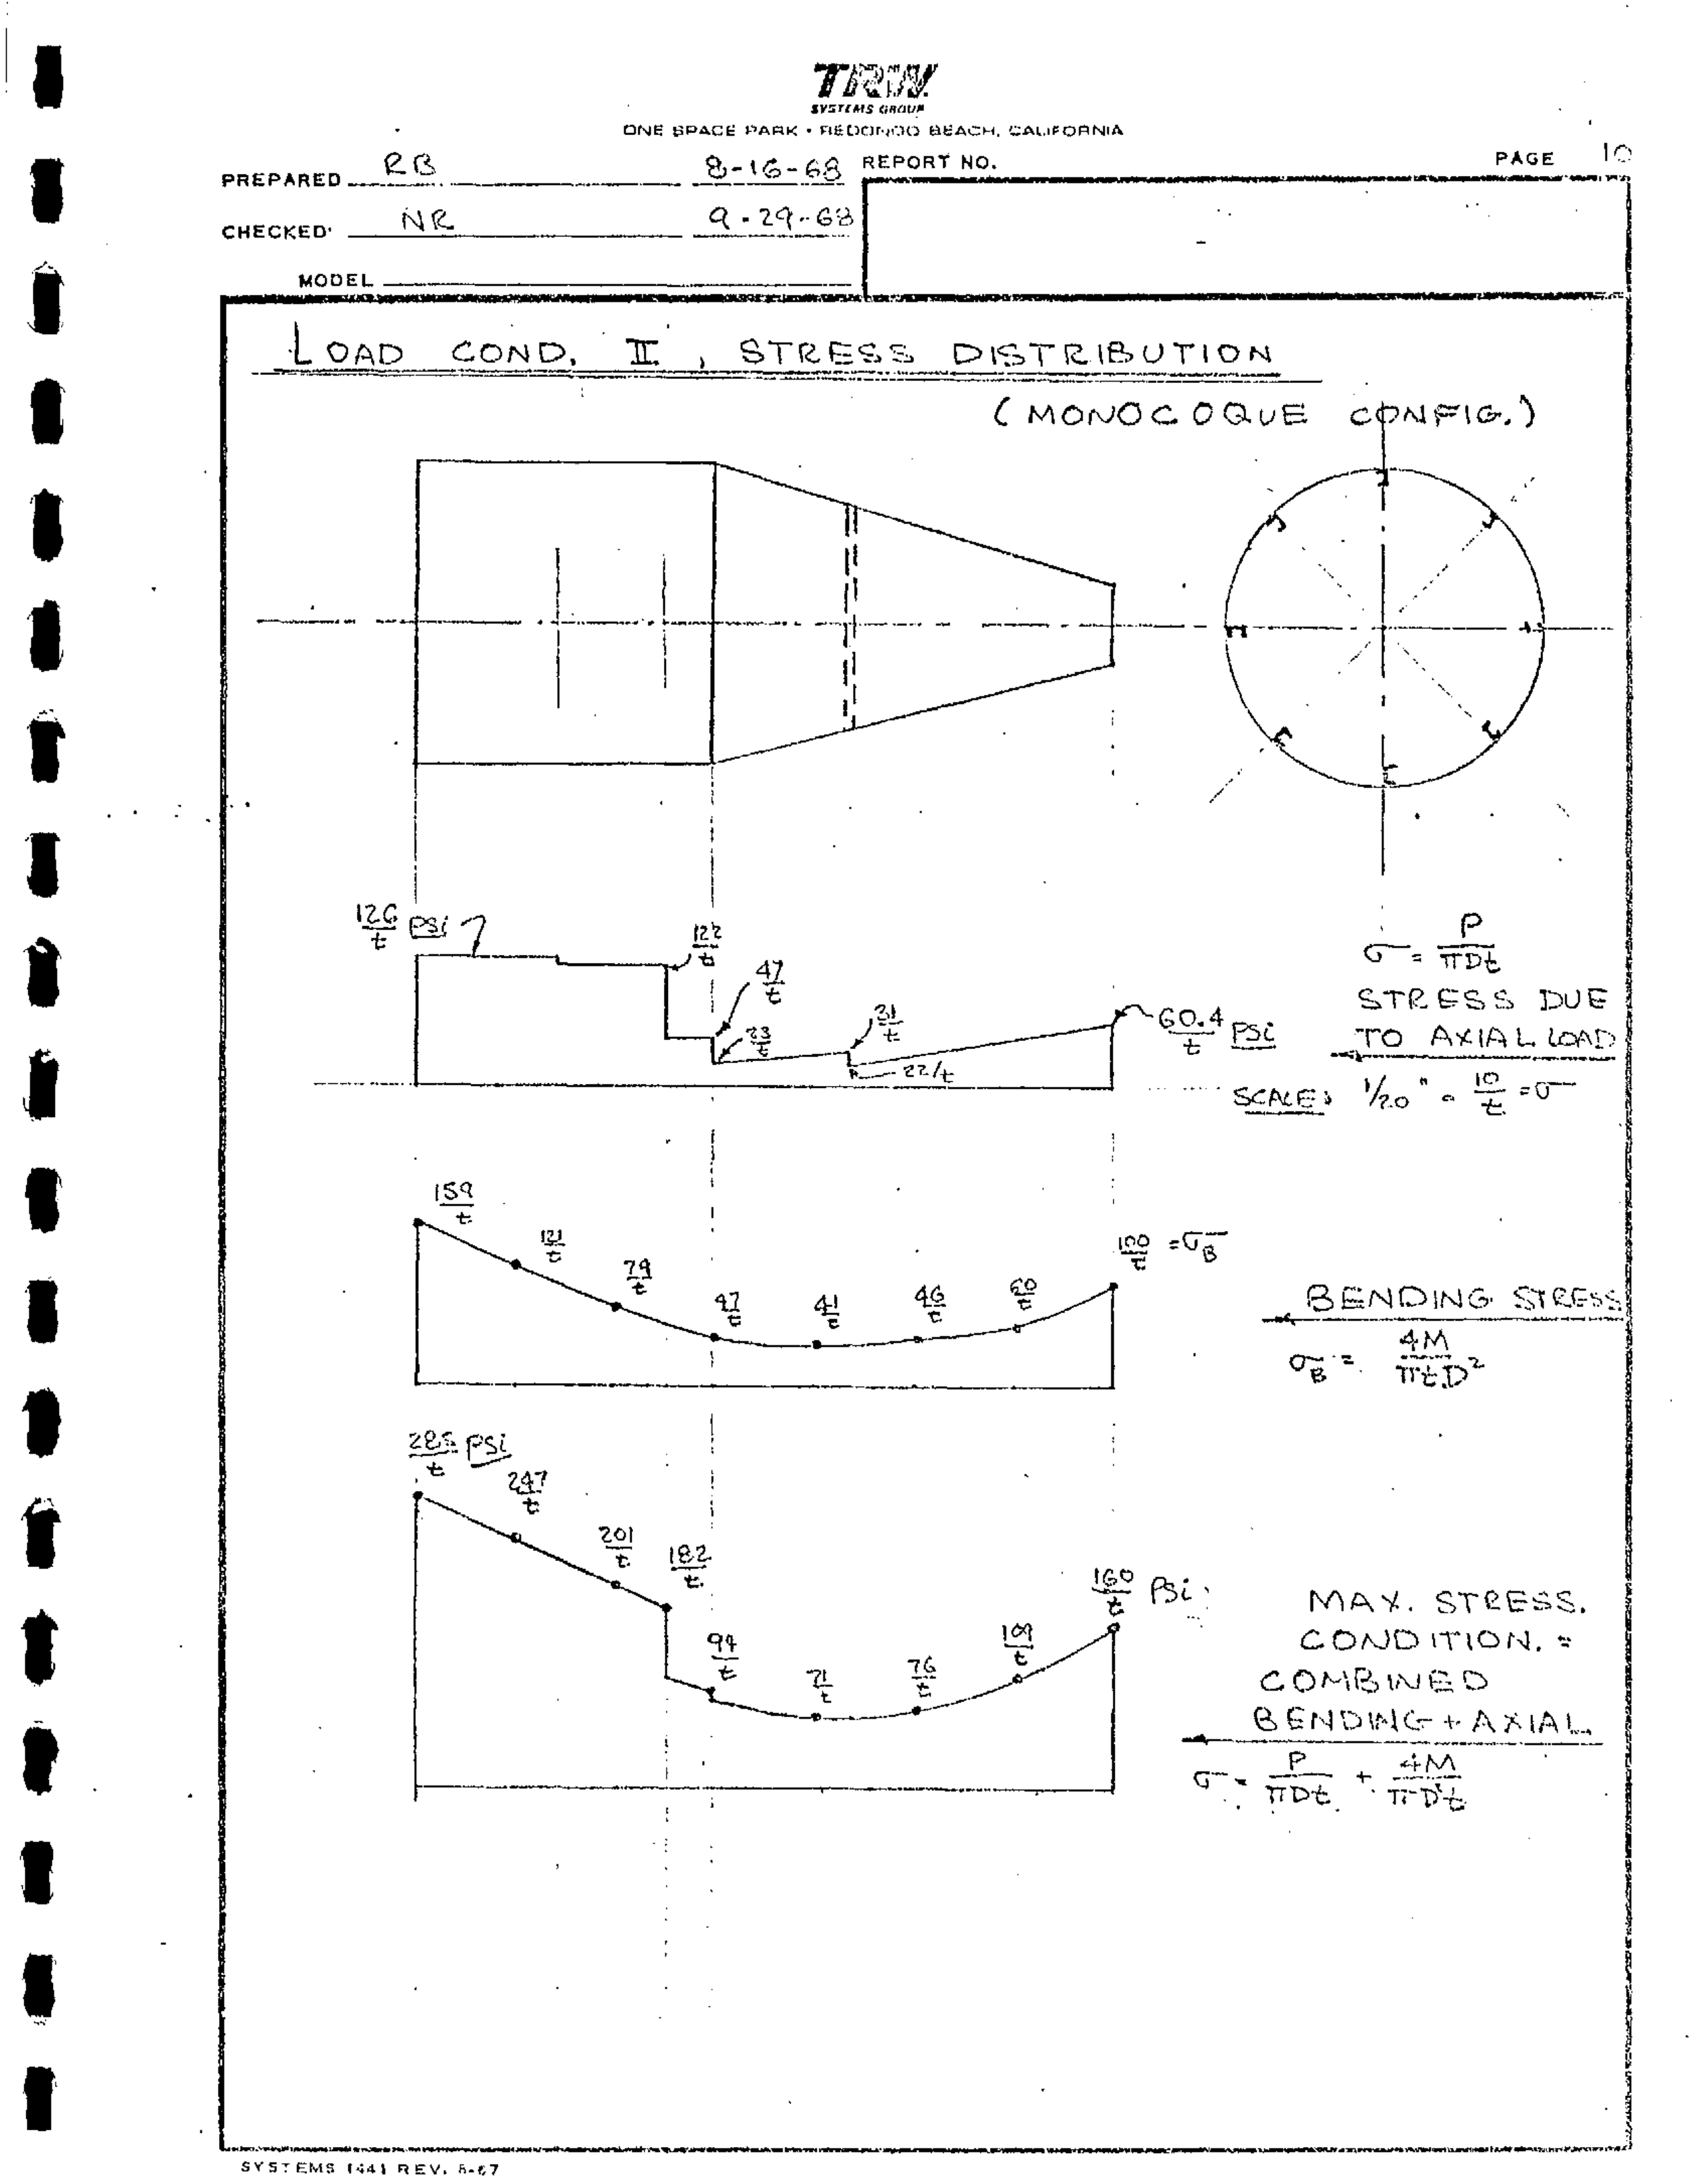 TRW
SYSTEMS GROUP
ONE SPACE PARK • REDONDO BEACH, CALIFORNIA
PREPARED RB 8-16-68 REPORT NO. PAGE 10
CHECKED NR 9-29-68
MODEL
LOAD COND. II, STRESS DISTRIBUTION
(MONOCOQUE CONFIG.)
126/t PSi
122/t
47/t
23/t
31/t
22/t
60.4/t PSi
σ = P/πDt
STRESS DUE
TO AXIAL LOAD
SCALE: 1/20" = 10/t = σ
159/t
121/t
79/t
47/t
41/t
46/t
60/t
100/t = σB
BENDING STRESS
σB = 4M/πtD²
285/t PSi
247/t
201/t
182/t
94/t
71/t
76/t
109/t
160/t PSi
MAX. STRESS.
CONDITION. =
COMBINED
BENDING + AXIAL
σ = P/πDt + 4M/πD²t
SYSTEMS 1441 REV. 8-67